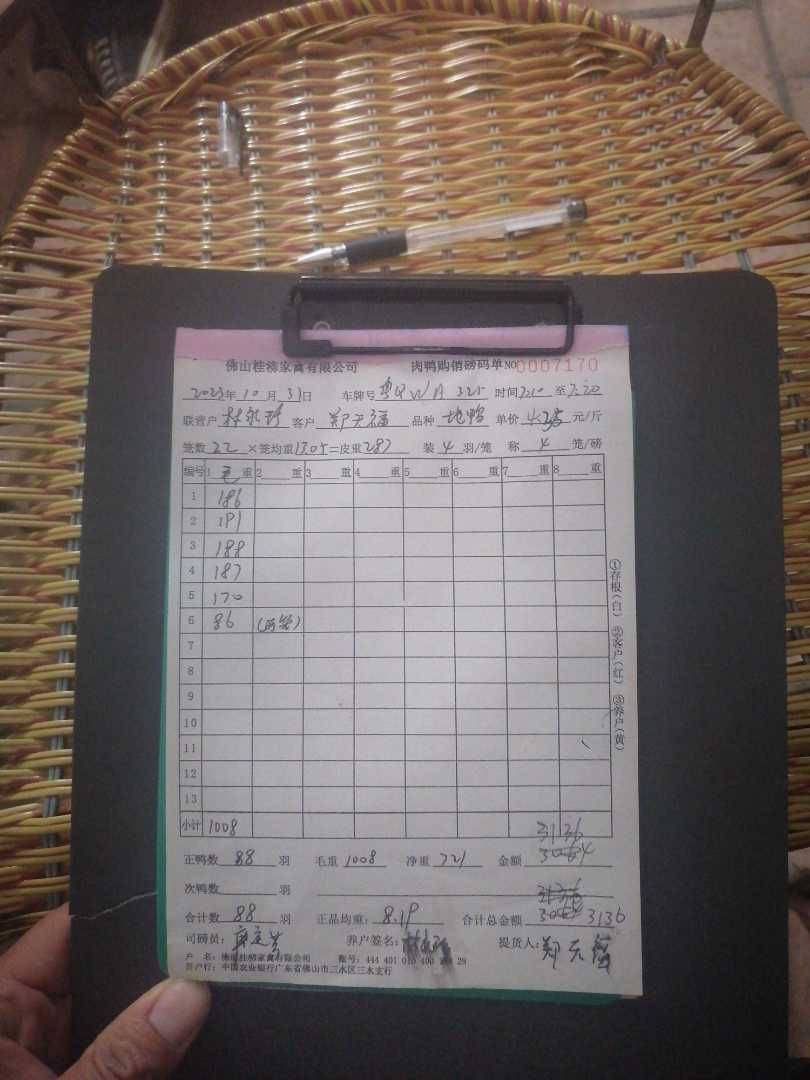 佛山桂柳家禽有限公司 肉鸭购销磅码单 NO 0007170
2023年10月31日 车牌号 粤QWA325 时间7:10至7:20
联营户 客户 郑天福 品种 地鸭 单价 4.35 元/斤
笼数 22 ×笼均重13.05=皮重287 装 4 羽/笼 称 4 笼/磅
编号 1 毛 重 2 重 3 重 4 重 5 重 6 重 7 重 8 重
1 186
2 191
3 188
4 187
5 170
6 86 (两笼)
7
8
9
10
11
12
13
小计 1008
3136
正鸭数 88 羽 毛重 1008 净重 721 金额 3064
次鸭数 羽 3136
合计数 88 羽 正品均重: 8.19 合计总金额 3136
司磅员: 养户签名: 提货人: 郑天福
户 名: 佛山桂柳家禽有限公司 账号: 444 401 010 400 29
开户行: 中国农业银行广东省佛山市三水区三水支行
①存根(白) ②客户(红) ③养户(黄)